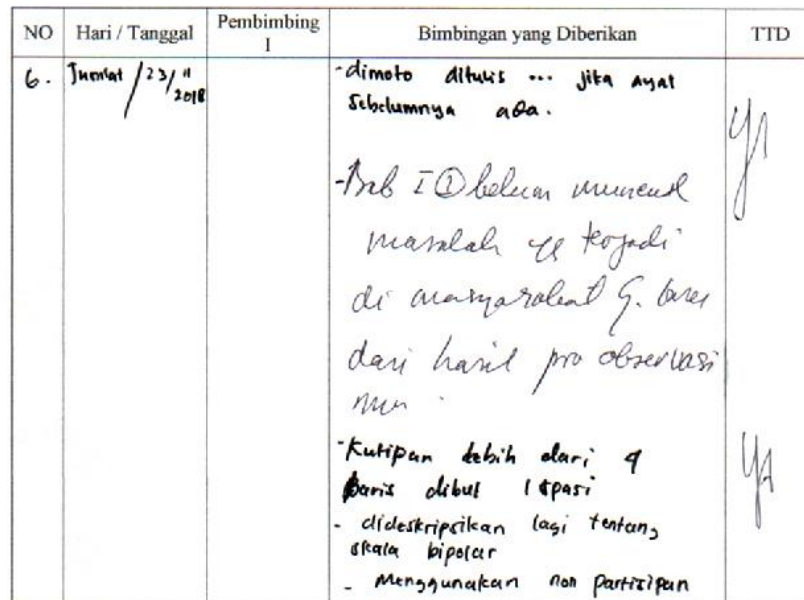 NO Hari / Tanggal Pembimbing I Bimbingan yang Diberikan TTD
6. Jumat / 23/11 2018
- dimoto ditulis ... jika ayat
sebelumnya ada.
- Bab I ① belum muncul
masalah yg terjadi
di masyarakat G.
dari hasil pra observasi
mu.
- Kutipan lebih dari 4
baris dibut 1 spasi
- dideskripsikan lagi tentang
skala bipolar
- Menggunakan non partisipan